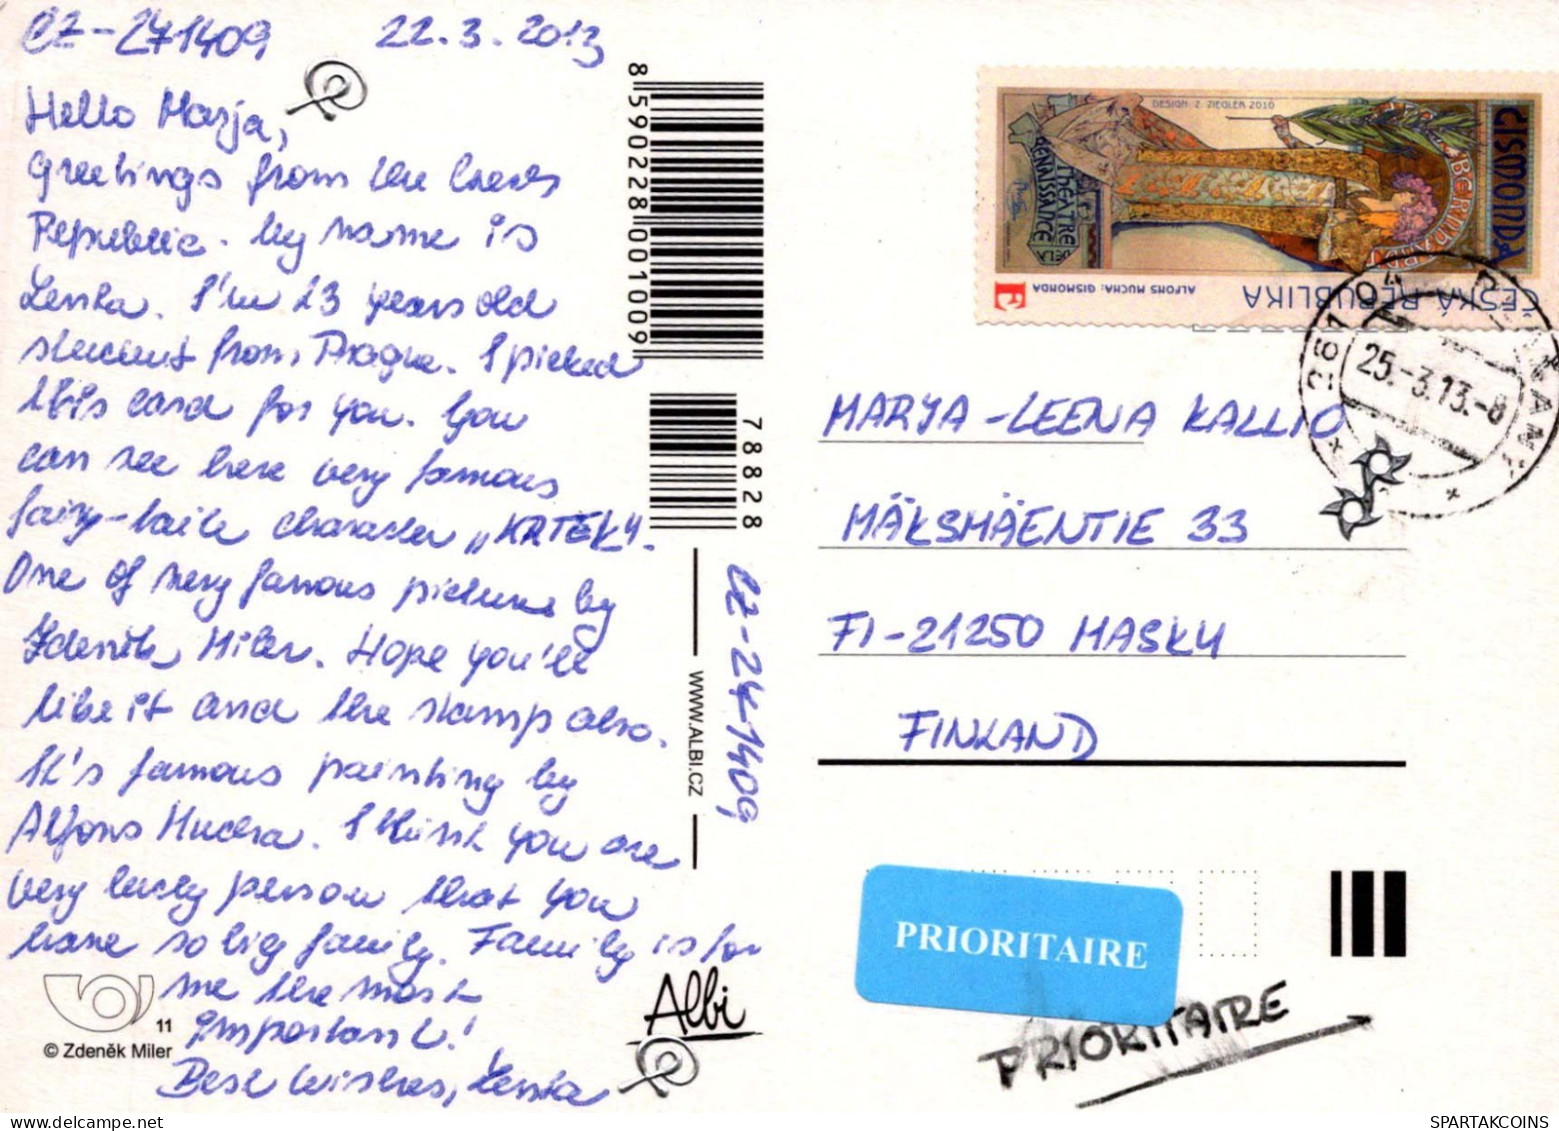 CZ-271409 22.3.2013
Hello Marja,
Greetings from the Czech
Republic. My name is
Lenka. I'm 23 years old
student from Prague. I picked
this card for you. You
can see here very famous
fairy-taile character „KRTEK".
One of very famous picture by
Zdeněk Miler. Hope you'll
like it and the stamp also.
It's famous painting by
Alfons Mucha. I think you are
very lucky person that you
have so big family. Family is for
me the most
important!
Best wishes, Lenka
11
© Zdeněk Miler
8 590228 001009
78828
CZ-271409
WWW.ALBI.CZ
Albi
DESIGN: Z. ZIEGLER 2010
GISMONDA
BERNHARDT
THEATRE DE LA RENAISSANCE
ALFONS MUCHA: GISMONDA
ČESKÁ REPUBLIKA
25.-3.13.-8
MARYA-LEENA KALLIO
MÄKSMÄENTIE 33
FI-21250 MASKU
FINLAND
PRIORITAIRE
PRIORITAIRE
SPARTAKCOINS.COM